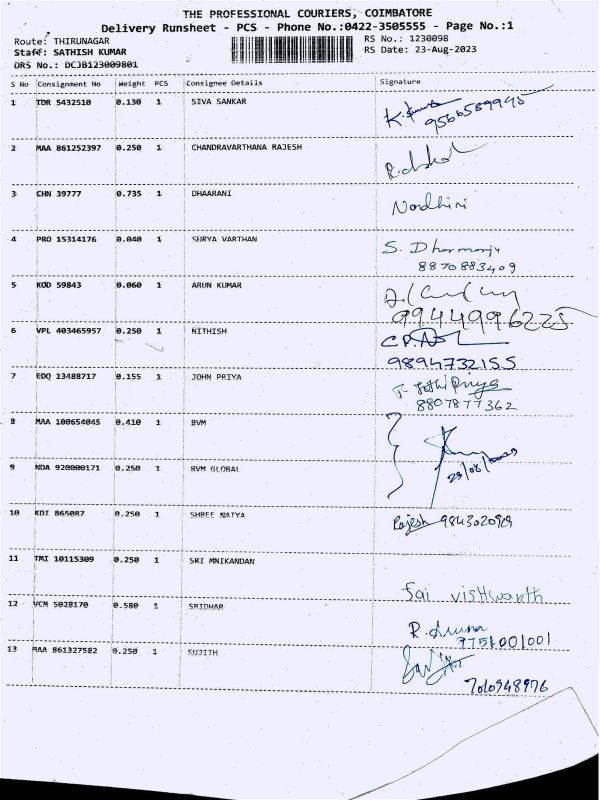 THE PROFESSIONAL COURIERS, COIMBATORE
Delivery Runsheet - PCS - Phone No.:0422-3505555 - Page No.:1
Route: THIRUNAGAR RS No.: 1230098
Staff: SATHISH KUMAR RS Date: 23-Aug-2023
DRS No.: DCJB123009801
S No Consignment No Weight PCS Consignee Details Signature
1 TDR 5432510 0.130 1 SIVA SANKAR
9566589945
2 MAA 861252397 0.250 1 CHANDRAVARTHANA RAJESH
3 CHN 39777 0.735 1 DHAARANI Nandhini
4 PRO 15314176 0.040 1 SURYA VARTHAN S. Dharmaraj
8870883409
5 KOD 59843 0.060 1 ARUN KUMAR
9944996225
6 VPL 403465957 0.250 1 NITHISH
9894732155
7 EDQ 13488717 0.155 1 JOHN PRIYA T. Jothi Priya
8807877362
8 MAA 100654045 0.410 1 BVM
9 NDA 920000171 0.250 1 BVM GLOBAL 23/08/2023
10 KDI 865087 0.250 1 SHREE NATYA Rajesh 9843020929
11 TMI 10115309 0.250 1 SRI MNIKANDAN
Sai Vishwanth
12 VCM 5028170 0.580 1 SRIDHAR R. Aruna
9751001001
13 MAA 861327582 0.250 1 SUJITH
7010948976